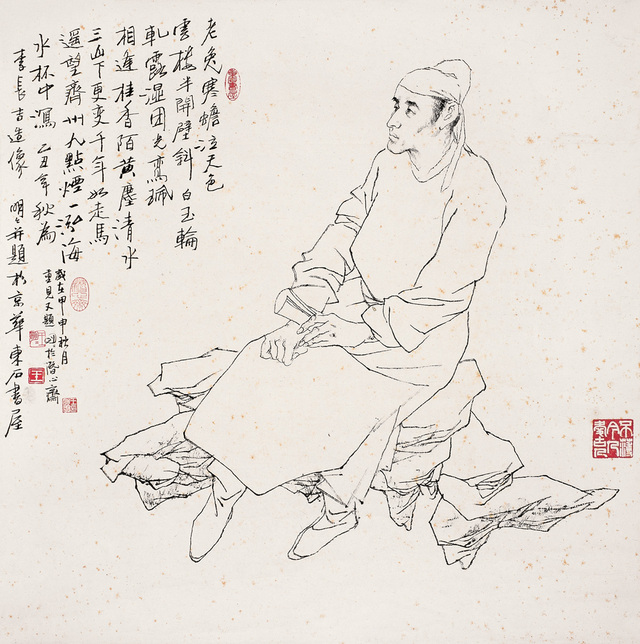 老兔寒蟾泣天色
雲樓半開壁斜白玉輪
軋露濕团光鸞珮
相逢桂香陌黃塵清水
三山下更變千年如走馬
遥望齊州九點煙一泓海
水杯中瀉 乙丑年秋為
李長吉造像 明明并題於京華東石書屋
歲在甲申秋月
重見又題 明於 心齋
王
不薄今人愛古人